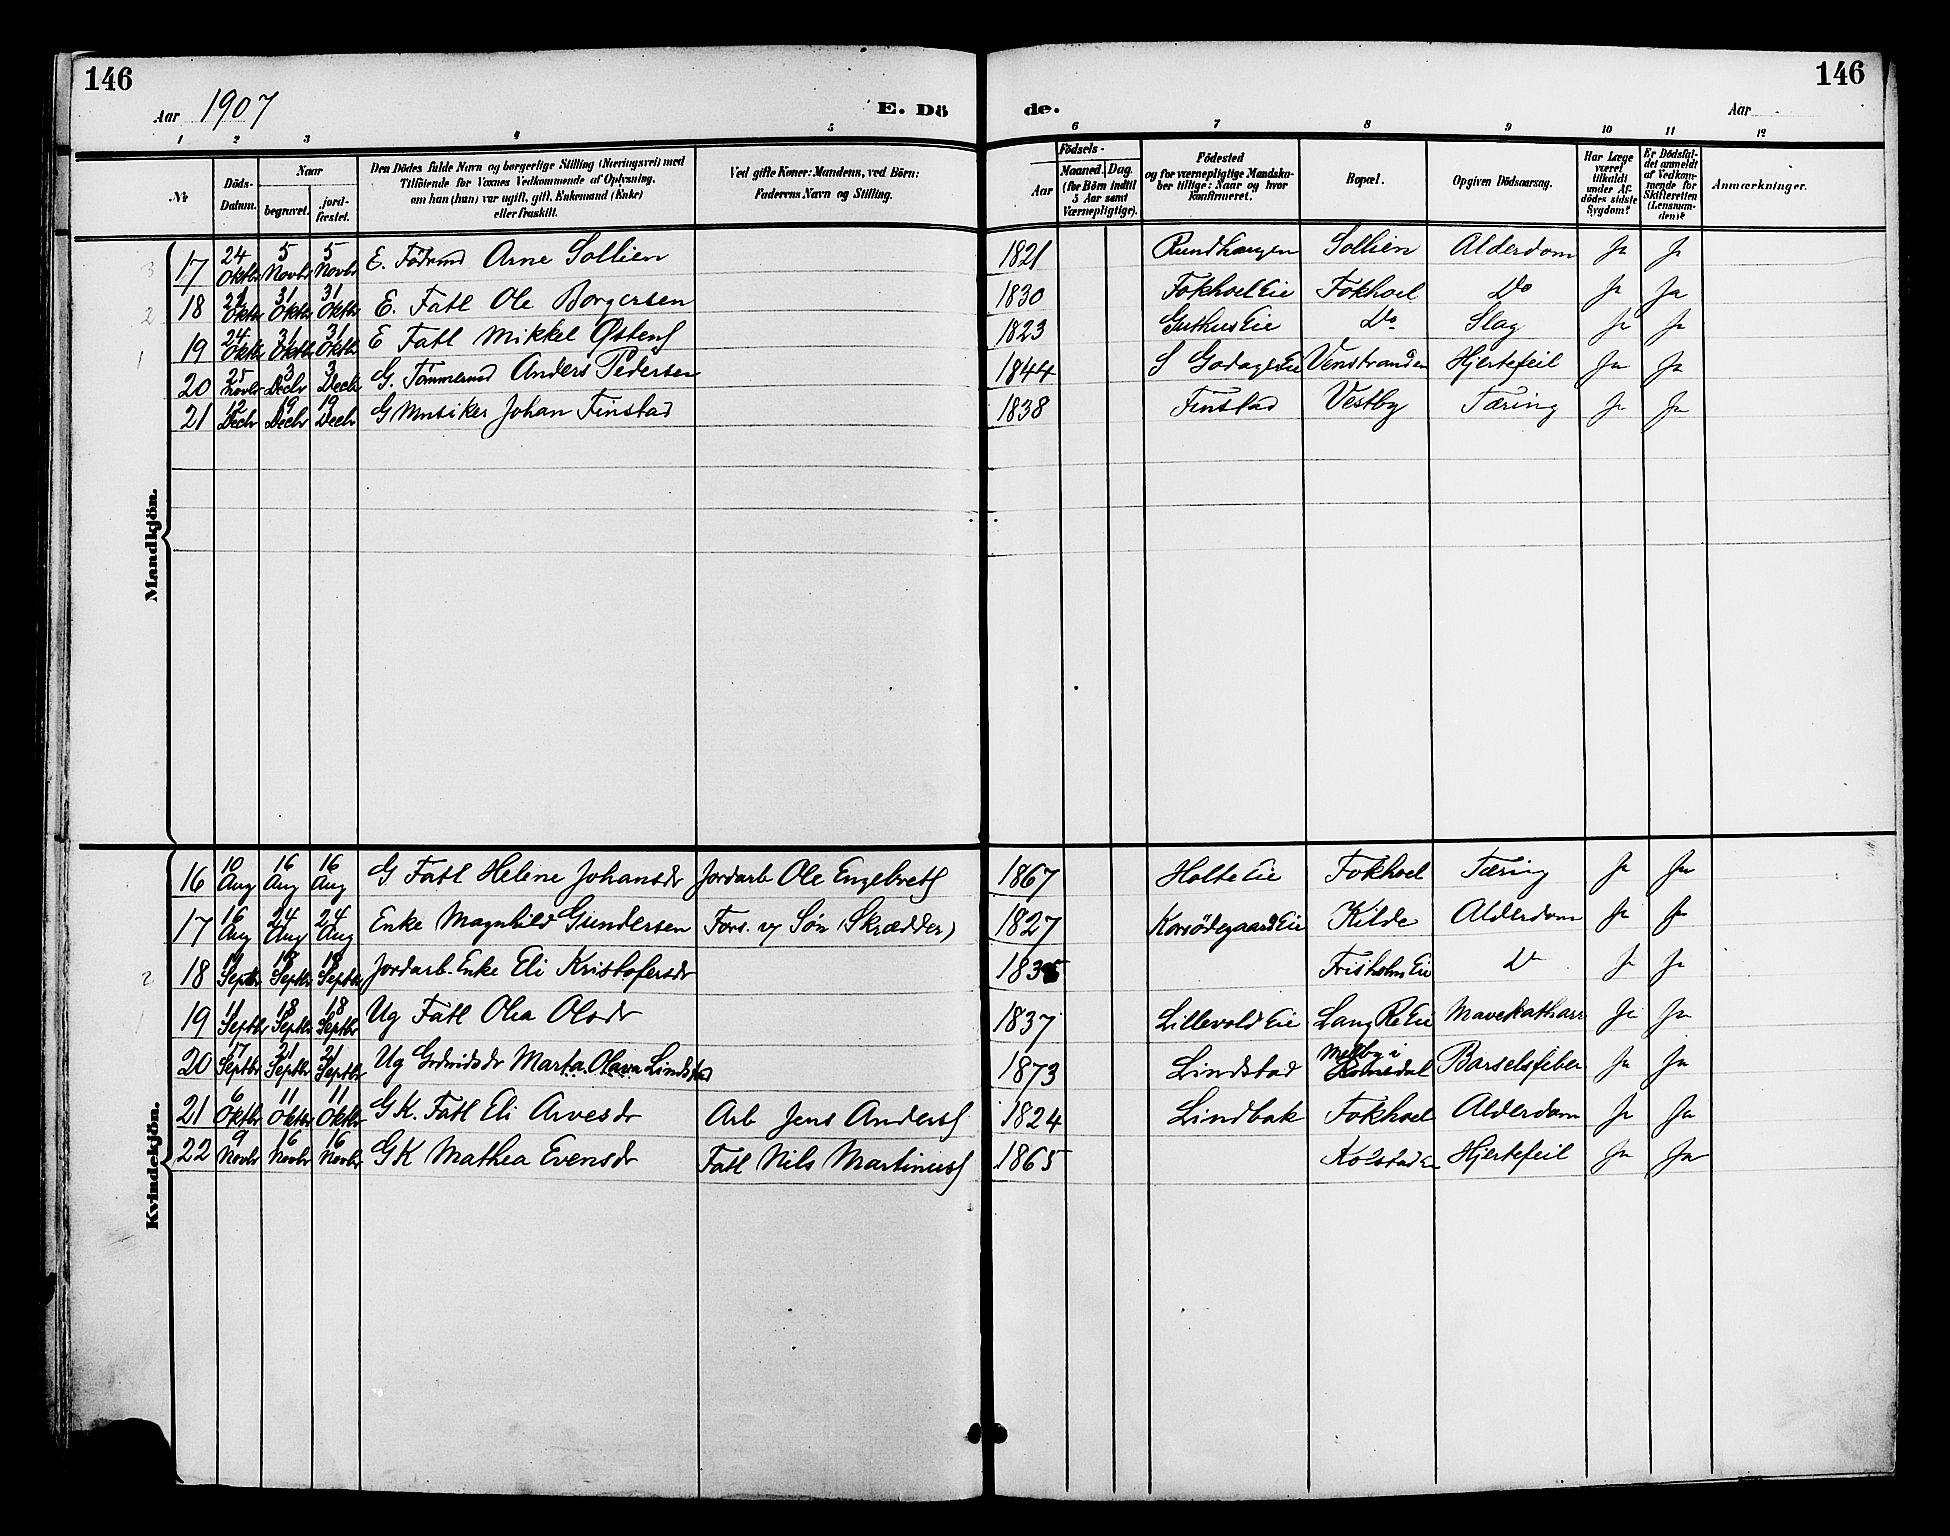 146
146
Aar 1907
E. Dö
de.
Aar
1 2 3 4 5 6 7 8 9 10 11 12
Nr
Döds-
Datum.
Naar
begravet.
jord-
fæstet.
Den Dödes fulde Navn og borgerlige Stilling (Næringsvei) med
Tilföiende for Voxnes Vedkommende af Oplysning,
om han (hun) var ugift, gift, Enkemand (Enke)
eller fraskilt.
Ved gifte Koner: Mandens, ved Börn:
Faderens Navn og Stilling.
Födsels-
Aar
Maaned.
Dag.
(for Börn indtil
5 Aar samt
Værnepligtige).
Födested
og for værnepligtige Mandsku-
ber tillige: Naar og hvor
konfirmeret.
Bopæl.
Opgiven Dödsaarsag.
Har Læge
været
tilkaldt
under Af-
dödes sidste
Sygdom?
Er Dödsfal-
det anmeldt
af Vedkom-
mende for
Skifteretten
(Lensman-
den)?
Anmærkninger.
Mandkjön.
3
17 24 Oktbr 5 Novbr 5 Novbr E. Föderaad Arne Sollien 1821 Rundhaugen Sollien Alderdom Ja Ja
2
18 Oktbr 31 Oktbr 31 Oktbr E. Fatl Ole Borgersen 1830 Fokhoel Eie Fokhoel Do Ja Ja
1
19 24 Oktbr 31 Oktbr 31 Oktbr E Fatl Mikkel Østens 1823 Guthus Eie Do Slag Ja Ja
20 25 Novbr 3 Decbr 3 Decbr G. Tømmermd Anders Pedersen 1844 S Godager Eie Venstranden Hjertefeil Ja Ja
21 12 Decbr 19 Decbr 19 Decbr G Musiker Johan Finstad 1838 Finstad Vestby Tæring Ja Ja
Kvindekjön.
16 10 Aug 16 Aug 16 Aug G Fatl Helene Johansdr Jordarb Ole Engebrets 1867 Holte Eie Fokhoel Tæring Ja Ja
17 16 Aug 24 Aug 24 Aug Enke Magnhild Gundersen Fors. ve Søn (Skrædder) 1827 Korsödegaard Eie Kilde Alderdom Ja Ja
2
18 11 Septbr 18 Septbr 18 Septbr Jordarb. Enke Eli Kristofersdr 1835 Frisholm Eie Do Ja Ja
1
19 11 Septbr 18 Septbr 18 Septbr Ug Fatl Olea Olsdr 1837 Lillevold Eie Lang Re Eie Mavekatharr Ja Ja
20 17 Septbr 21 Septbr 21 Septbr Ug Grdmdsdr Marta Olava Lindstad 1873 Lindstad Melby i Romedal Barselsfeber Ja Ja
21 6 Oktbr 11 Oktbr 11 Oktbr G K. Fatl Eli Arvesdr Arb Jens Anders 1824 Lindbak Fokhoel Alderdom Ja Ja
22 9 Novbr 16 Novbr 16 Novbr G K Mathea Evensdr Fatl Nils Martinus 1865 Kolstad Eie Hjertefeil Ja Ja